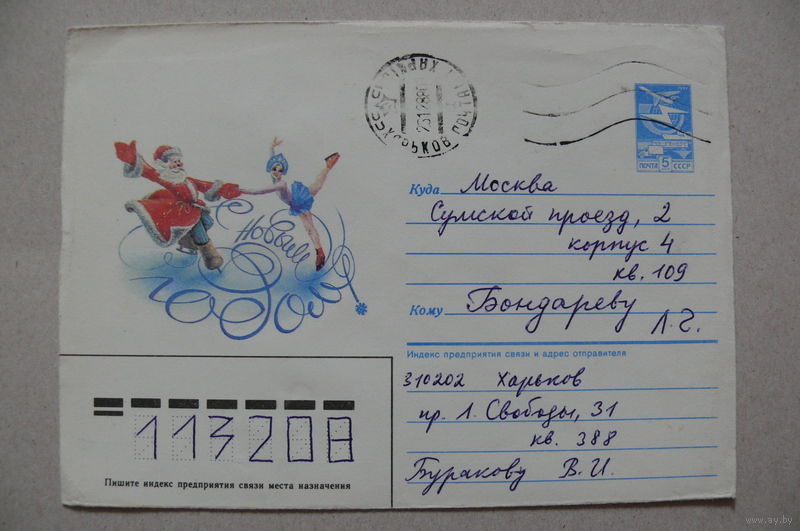 С
Новым
Годом
СССР
ХАРЬКОВ
231288
ПОЧТА 5к СССР
Куда Москва
Сумской проезд, 2
корпус 4
кв. 109
Кому Бондареву
Л.Г.
Индекс предприятия связи и адрес отправителя
310202 Харьков
пр. Л. Свободы, 31
кв. 388
Буракову В.И.
113208
Пишите индекс предприятия связи места назначения
www.ay.by